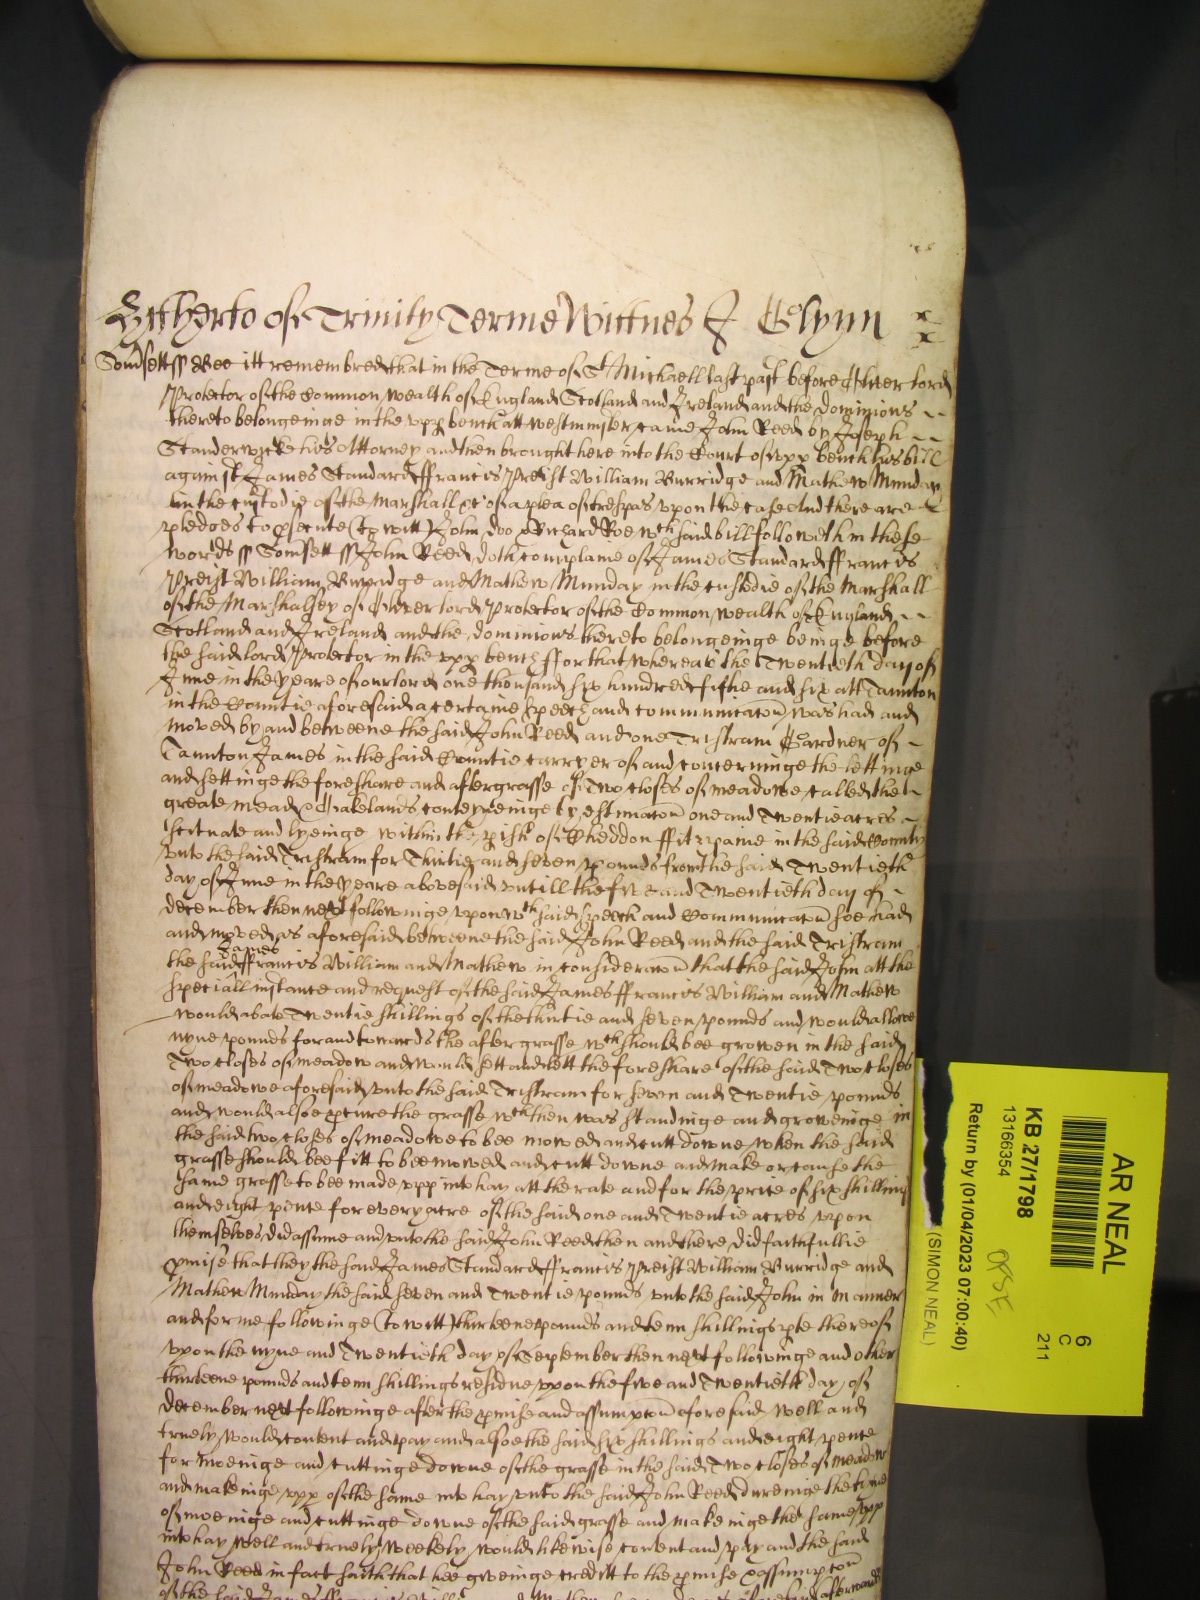 Hitherto of Trinity Terme Wittnes J Glynn
Somsett ss Bee itt remembred that in the Terme of St Michaell last past before Oliver lord
Protector of the Common wealth of England Scotland and Ireland and the dominions
thereto belongeinge in the upp bench att westminster came John Reed by Joseph
Standerwicke his Attorney and then brought here into the Court of upp bench his bill
against James Standard ffrancis Preist William Burridge and Mathew Munday
in the custodie of the Marshall &c of a plea of trespas upon the case And there are
pledges to psecute (to witt) John doo & Richard Roe wch said bill followeth in these
words ss Somsett ss John Reed doth complaine of James Standard ffrancis
Preist William Burridge and Mathew Munday in the custodie of the Marshall
of the Marshalsey of Oliver lord Protector of the Common wealth of England
Scotland and Ireland and the dominions thereto belongeinge beinge before
the said lord Protector in the upp bench ffor that whereas the Twentieth day of
June in the yeare of our lord one thousand six hundred fiftie and six att Taunton
in the Countie aforesaid a certaine speech and communicacon was had and
moved by and betweene the said John Reed and one Tristram Gardner of
Taunton James in the said Countie carryer of and concerninge the lettinge
and settinge the foreshare and aftergrasse of Two closes of meadowe called the
greate mead & Oakelands conteyneinge by estimacon one and Twentie acres
scituate and lyeinge within the pish of Cheddon ffitzpaine in the said County
unto the said Tristram for Thirtie and seven pounds from the said Twentieth
day of June in the yeare abovesaid untill the five and Twentieth day of
december then next followinge upon wch said speech and Communicacon soe had
and moved as aforesaid betweene the said John Reed and the said Tristram
James
the said ffrancis William and Mathew in consideracon that the said John att the
speciall instance and request of the said James ffrancis William and Mathew
would abate Twentie shillings of the thirtie and seven pounds and would allowe
nyne pounds for and towards the after grasse wch should bee growen in the said
Two closes of meadow and would sett and lett the foreshare of the said Two closes
of meadowe aforesaid unto the said Tristram for seven and Twentie pounds
and would alsoe pcure the grasse wch then was standinge and groweinge in
the said two closes of meadowe to bee mowed and cutt downe when the said
grasse should bee fitt to bee mowed and cutt downe and make or cause the
same grasse to bee made upp into hay att the rate and for the price of six shillings
and eight pence for every acre of the said one and Twentie acres upon
themselves did assume and unto the said John Reed then and there did faithfullie
pmise that they the said James Standard ffrancis Preist William Burridge and
Mathew Munday the said seven and Twentie pounds unto the said John in manner
and forme followinge (to witt) thirteene pounds and tenn shillings pte thereof
upon the nyne and Twentieth day of September then next followinge and other
thirteene pounds and tenn shillings residue upon the five and Twentieth day of
december next followinge after the pmise and assumpcon aforesaid well and
truely would content and pay and alsoe the said six shillings and eight pence
for moweinge and cuttinge downe of the grasse in the said Two closes of meadow
and makeinge upp of the same into hay unto the said John Reed dureinge the time
of moweinge and cuttinge downe of the said grasse and makeinge the same upp
into hay well and truely weekely would likewise content and pay and the said
John Reed in fact saith that hee giveinge creditt to the pmise & assumpcon
of the said James ffrancis William and Mathew afterwards
AR NEAL
KB 27/1798
13166354
Return by (01/04/2023 07:00:40)
(SIMON NEAL)
6
C
211